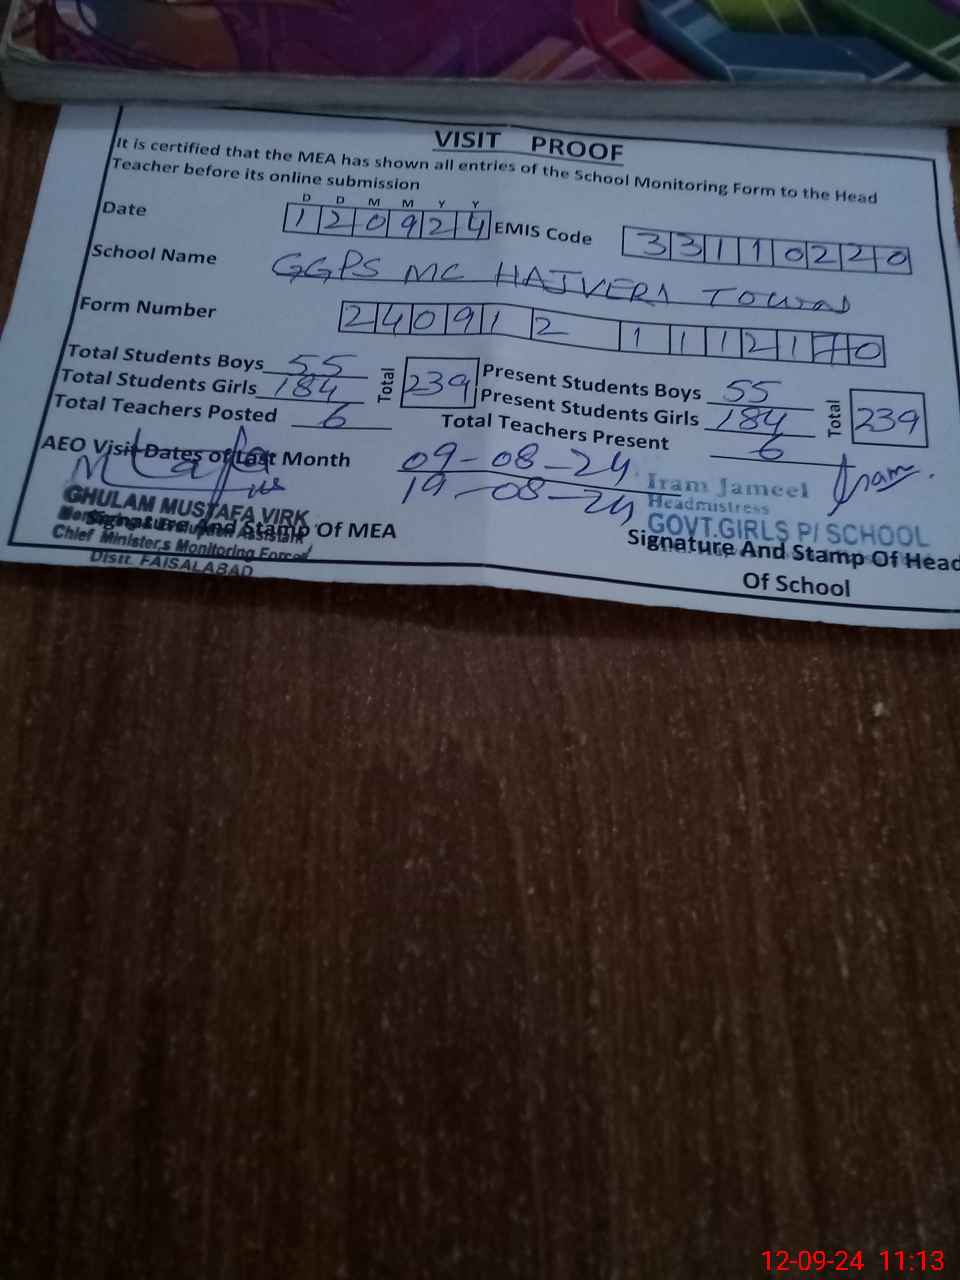 VISIT PROOF
It is certified that the MEA has shown all entries of the School Monitoring Form to the Head
Teacher before its online submission
D D M M Y Y
Date 1 2 0 9 2 4 EMIS Code 3 3 1 1 0 2 2 0
School Name GGPS MC HAJVERI TOWN
Form Number 2 4 0 9 1 2 1 1 1 2 1 0
Total Students Boys 55 Total 239 Present Students Boys 55 Total 239
Total Students Girls 184 Present Students Girls 184
Total Teachers Posted 6 Total Teachers Present 6
AEO Visit Dates of Last Month 09-08-24
19-08-24
Iram
Iram Jameel
Headmistress
GOVT.GIRLS P/SCHOOL
GHULAM MUSTAFA VIRK
Monitoring & Evaluation Assistant
Chief Minister,s Monitoring Force
Distt. FAISALABAD
Signature And Stamp Of MEA
Signature And Stamp Of Head
Of School
12-09-24 11:13